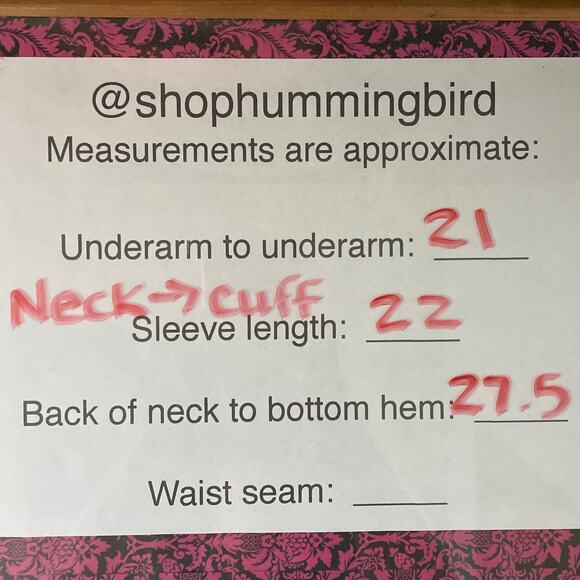 @shophummingbird
Measurements are approximate:
Underarm to underarm: 21
Neck → cuff
Sleeve length: 22
Back of neck to bottom hem: 27.5
Waist seam: